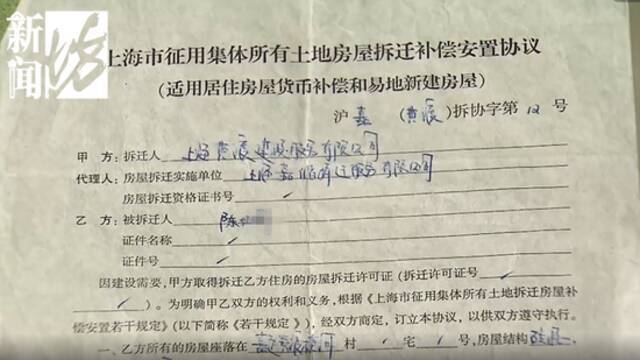 新闻坊
上海市征用集体所有土地房屋拆迁补偿安置协议
(适用居住房屋货币补偿和易地新建房屋)
沪 嘉 (黄渡)拆协字第 12 号
甲 方：拆迁人 上海黄渡建设服务有限公司
代理人：房屋拆迁实施单位 上海嘉 服务有限公司
房屋拆迁资格证书号 /
乙 方：被拆迁人 陈
证件名称 /
证件号 /
因建设需要，甲方取得拆迁乙方住房的房屋拆迁许可证（拆迁许可证号
/ / ）。为明确甲乙双方的权利和义务，根据《上海市征用集体所有土地拆迁房屋补
偿安置若干规定》（以下简称《若干规定》），经双方商定，订立本协议，以供双方遵守执行。
一、乙方所有的房屋座落在 村 / 宅 / 号，房屋结构